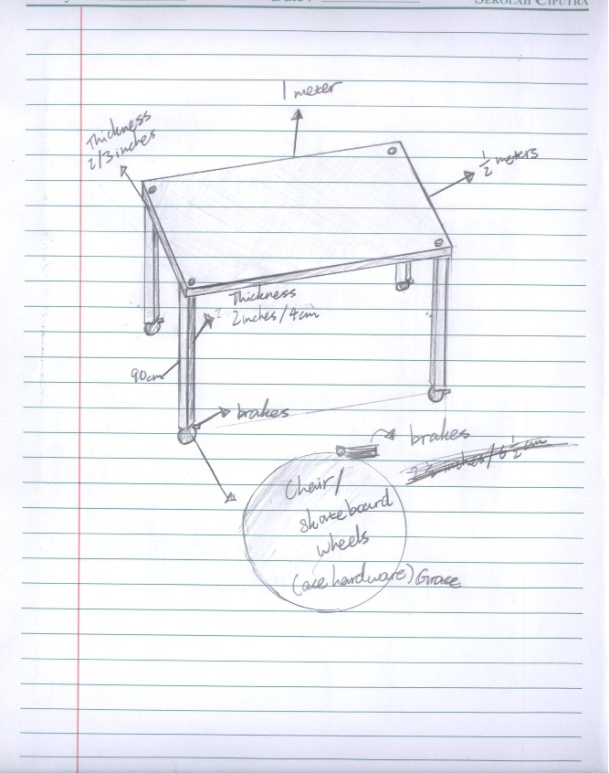 SEKOLAH CIPUTRA
1 meter
Thickness
2/3 inches
1/2 meters
Thickness
2 inches / 4cm
90cm
brakes
brakes
Chair/
skateboard
wheels
(ace hardware) Grace